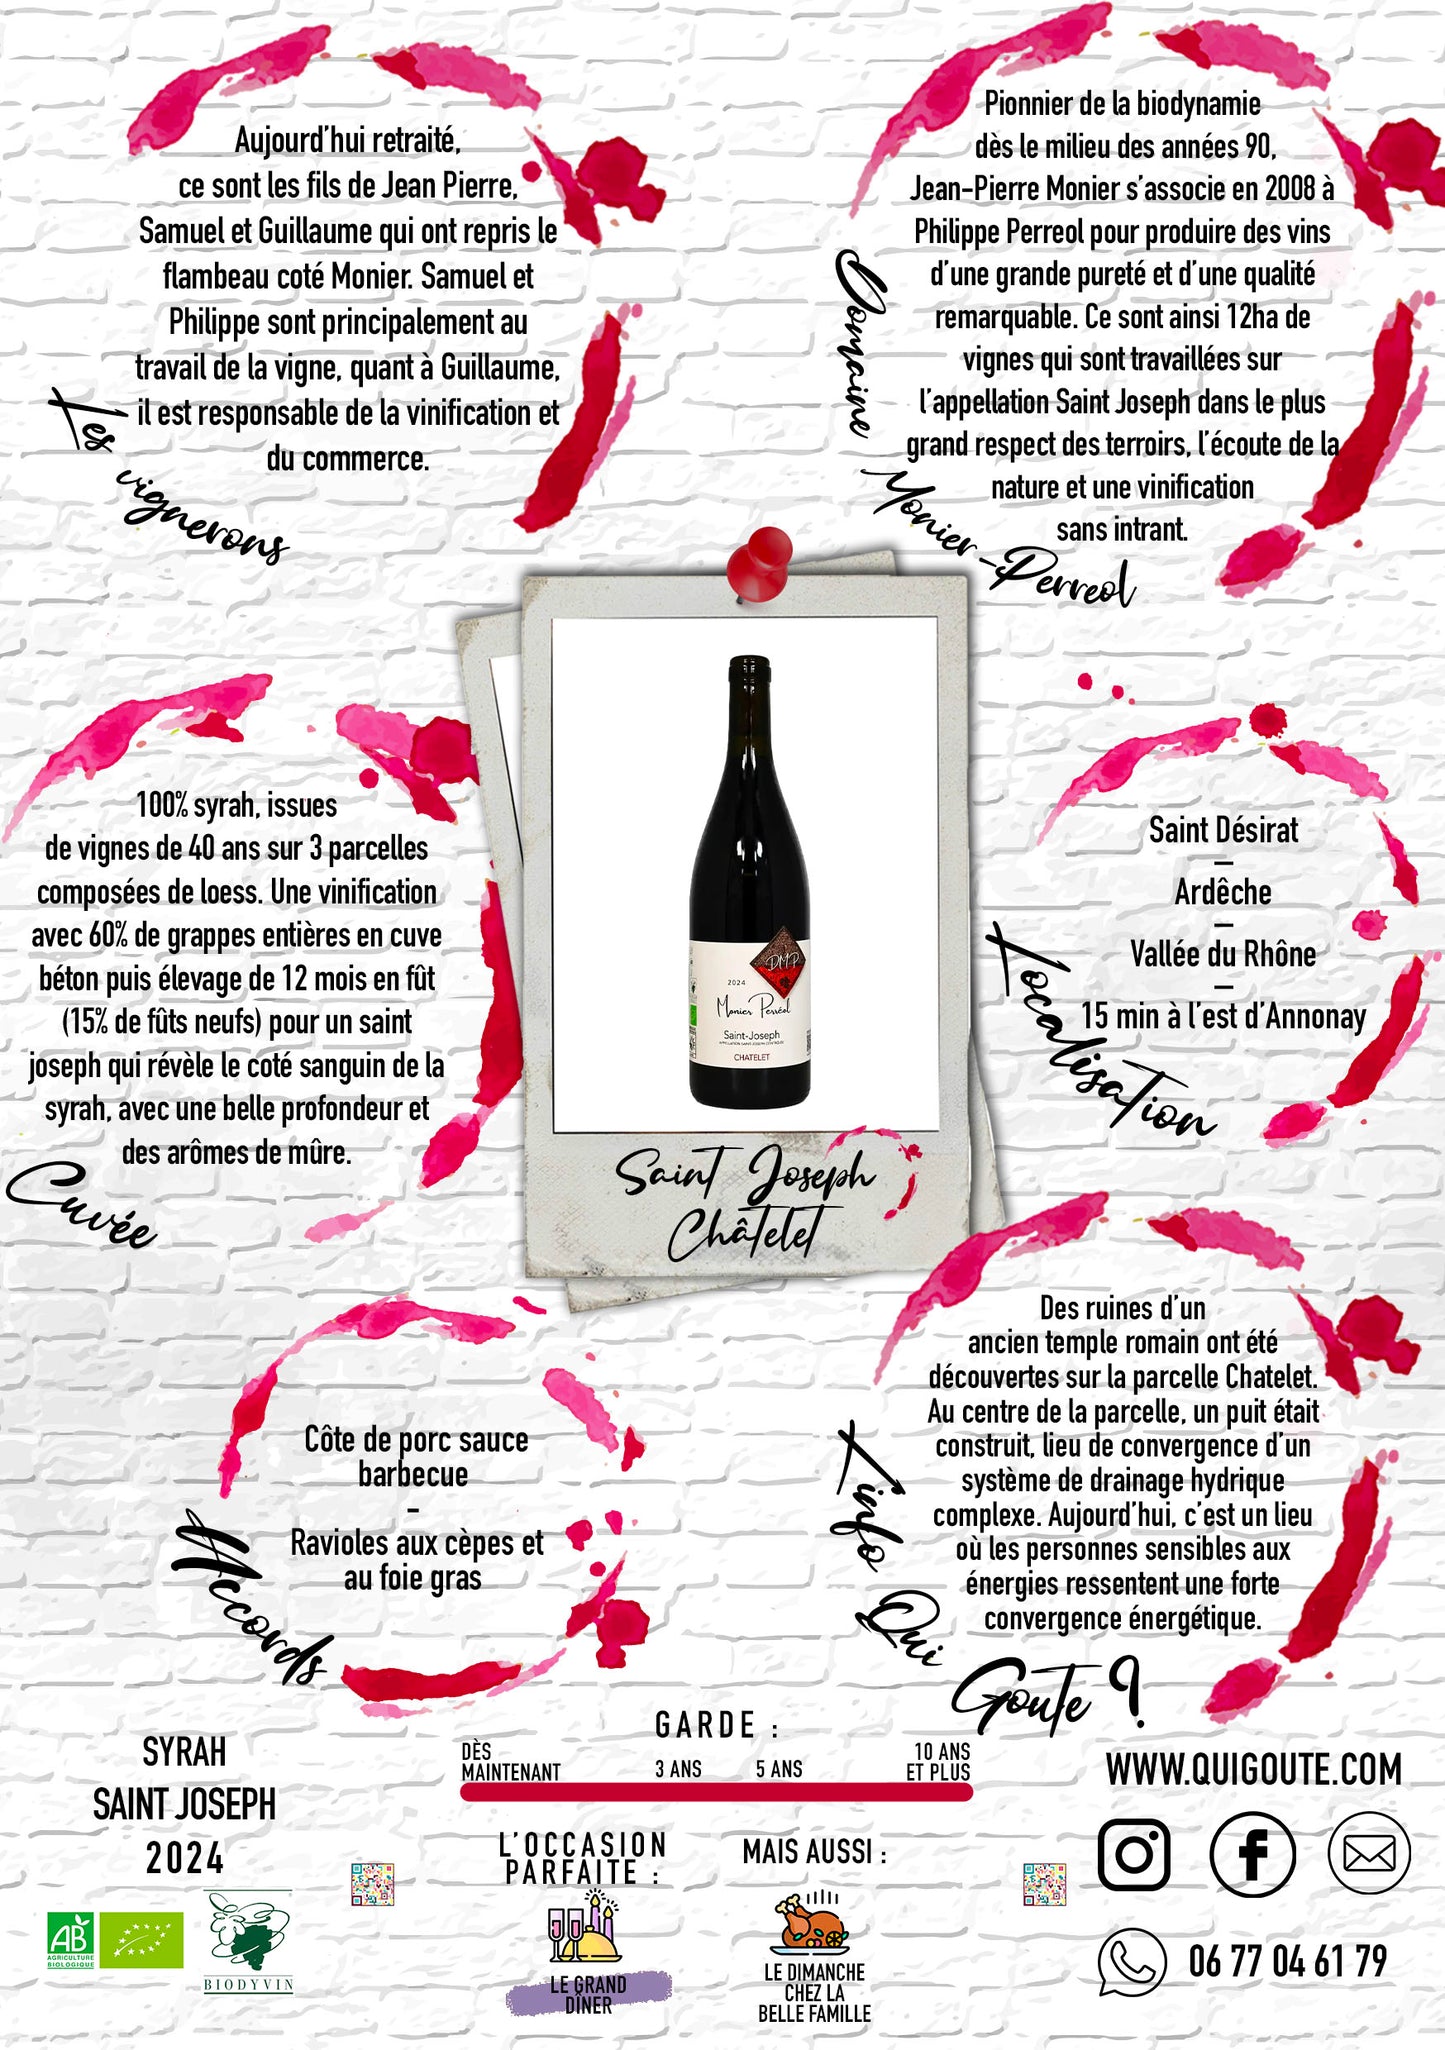 Aujourd’hui retraité,
ce sont les fils de Jean Pierre,
Samuel et Guillaume qui ont repris le
flambeau coté Monier. Samuel et
Philippe sont principalement au
travail de la vigne, quant à Guillaume,
il est responsable de la vinification et
du commerce.
Les vignerons
Pionnier de la biodynamie
dès le milieu des années 90,
Jean-Pierre Monier s’associe en 2008 à
Philippe Perreol pour produire des vins
d’une grande pureté et d’une qualité
remarquable. Ce sont ainsi 12ha de
vignes qui sont travaillées sur
l’appellation Saint Joseph dans le plus
grand respect des terroirs, l’écoute de la
nature et une vinification
sans intrant.
Domaine Monier-Perreol
100% syrah, issues
de vignes de 40 ans sur 3 parcelles
composées de loess. Une vinification
avec 60% de grappes entières en cuve
béton puis élevage de 12 mois en fût
(15% de fûts neufs) pour un saint
joseph qui révèle le coté sanguin de la
syrah, avec une belle profondeur et
des arômes de mûre.
Cuvée
DMP
2024
Monier Perréol
Saint-Joseph
CHATELET
Saint Joseph
Châtelet
Saint Désirat
–
Ardêche
–
Vallée du Rhône
–
15 min à l’est d’Annonay
Localisation
Côte de porc sauce
barbecue
-
Ravioles aux cèpes et
au foie gras
Accords
Des ruines d’un
ancien temple romain ont été
découvertes sur la parcelle Chatelet.
Au centre de la parcelle, un puit était
construit, lieu de convergence d’un
système de drainage hydrique
complexe. Aujourd’hui, c’est un lieu
où les personnes sensibles aux
énergies ressentent une forte
convergence énergétique.
L'info Qui
Goute ?
SYRAH
SAINT JOSEPH
2024
AB
AGRICULTURE
BIOLOGIQUE
BIODYVIN
GARDE :
DÈS
MAINTENANT
3 ANS
5 ANS
10 ANS
ET PLUS
L’OCCASION
PARFAITE :
LE GRAND
DÎNER
MAIS AUSSI :
LE DIMANCHE
CHEZ LA
BELLE FAMILLE
WWW.QUIGOUTE.COM
06 77 04 61 79